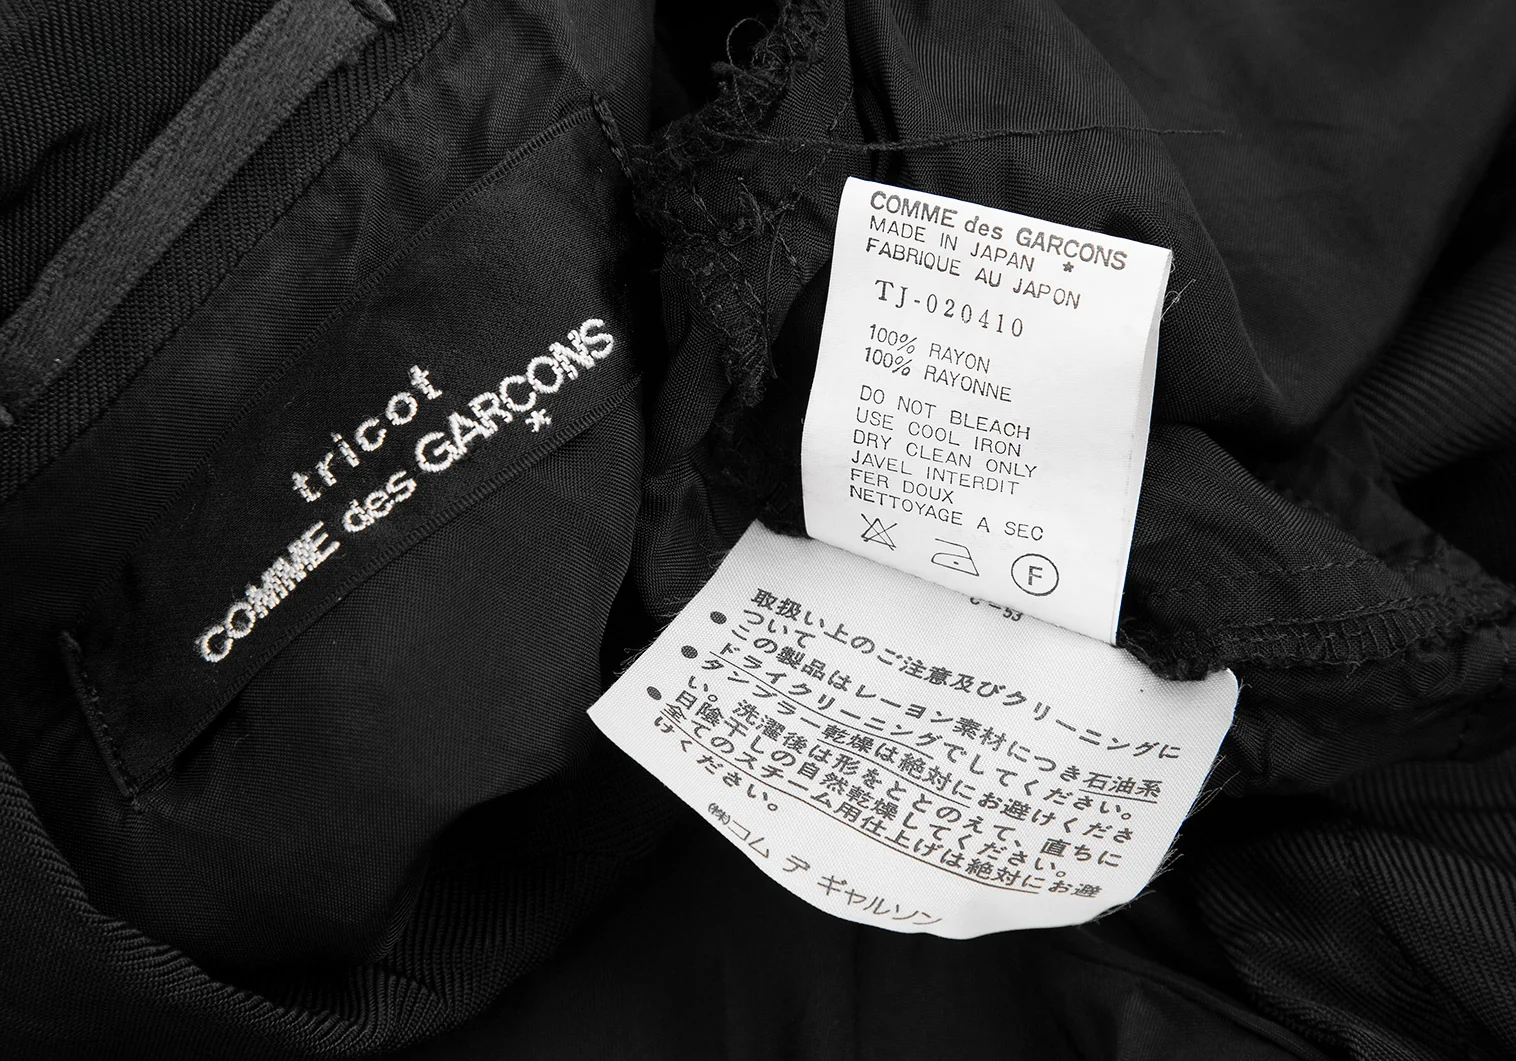 tricot
COMME des GARÇONS
*
COMME des GARCONS
MADE IN JAPAN *
FABRIQUE AU JAPON
TJ-020410
100% RAYON
100% RAYONNE
DO NOT BLEACH
USE COOL IRON
DRY CLEAN ONLY
JAVEL INTERDIT
FER DOUX
NETTOYAGE A SEC
F
C-53
取扱い上のご注意及びクリーニングに
ついて
●この製品はレーヨン素材につき石油系
ドライクリーニングでしてください。
●タンブラー乾燥は絶対にお避けくださ
い。洗濯後は形をととのえて、直ちに
日陰干しの自然乾燥してください。
●全てのスチーム用仕上げは絶対にお避
けください。
㈱コム デ ギャルソン